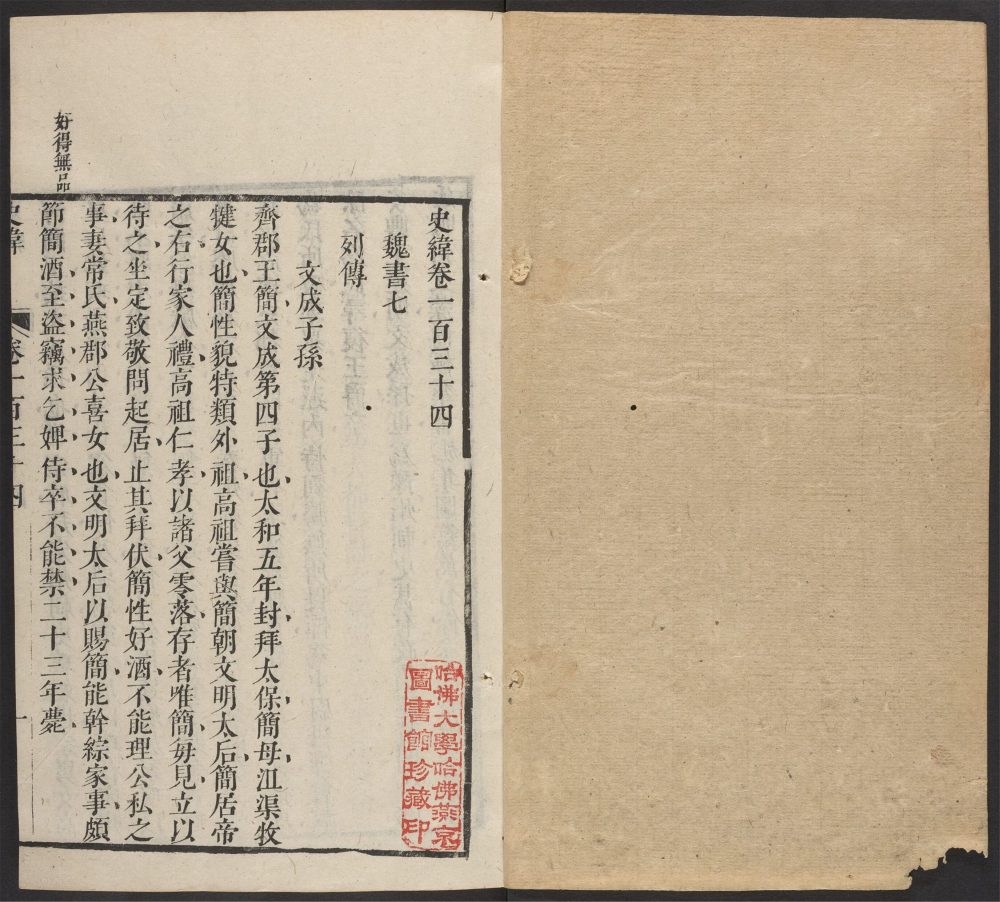 史緯卷一百三十四
魏書七
列傳
文成子孫
齊郡王簡文成第四子也太和五年封拜太保簡母沮渠牧
犍女也簡性貌特類外祖高祖嘗與簡朝文明太后簡居帝
之右行家人禮高祖仁孝以諸父零落存者唯簡每見立以
待之坐定致敬問起居止其拜伏簡性好酒不能理公私之
事妻常氏燕郡公喜女也文明太后以賜簡能幹綜家事頗
節簡酒至盜竊求乞婢侍卒不能禁二十三年薨
好得無品
史緯
卷一百三十四
一
哈佛大學哈佛燕京
圖書館珍藏印